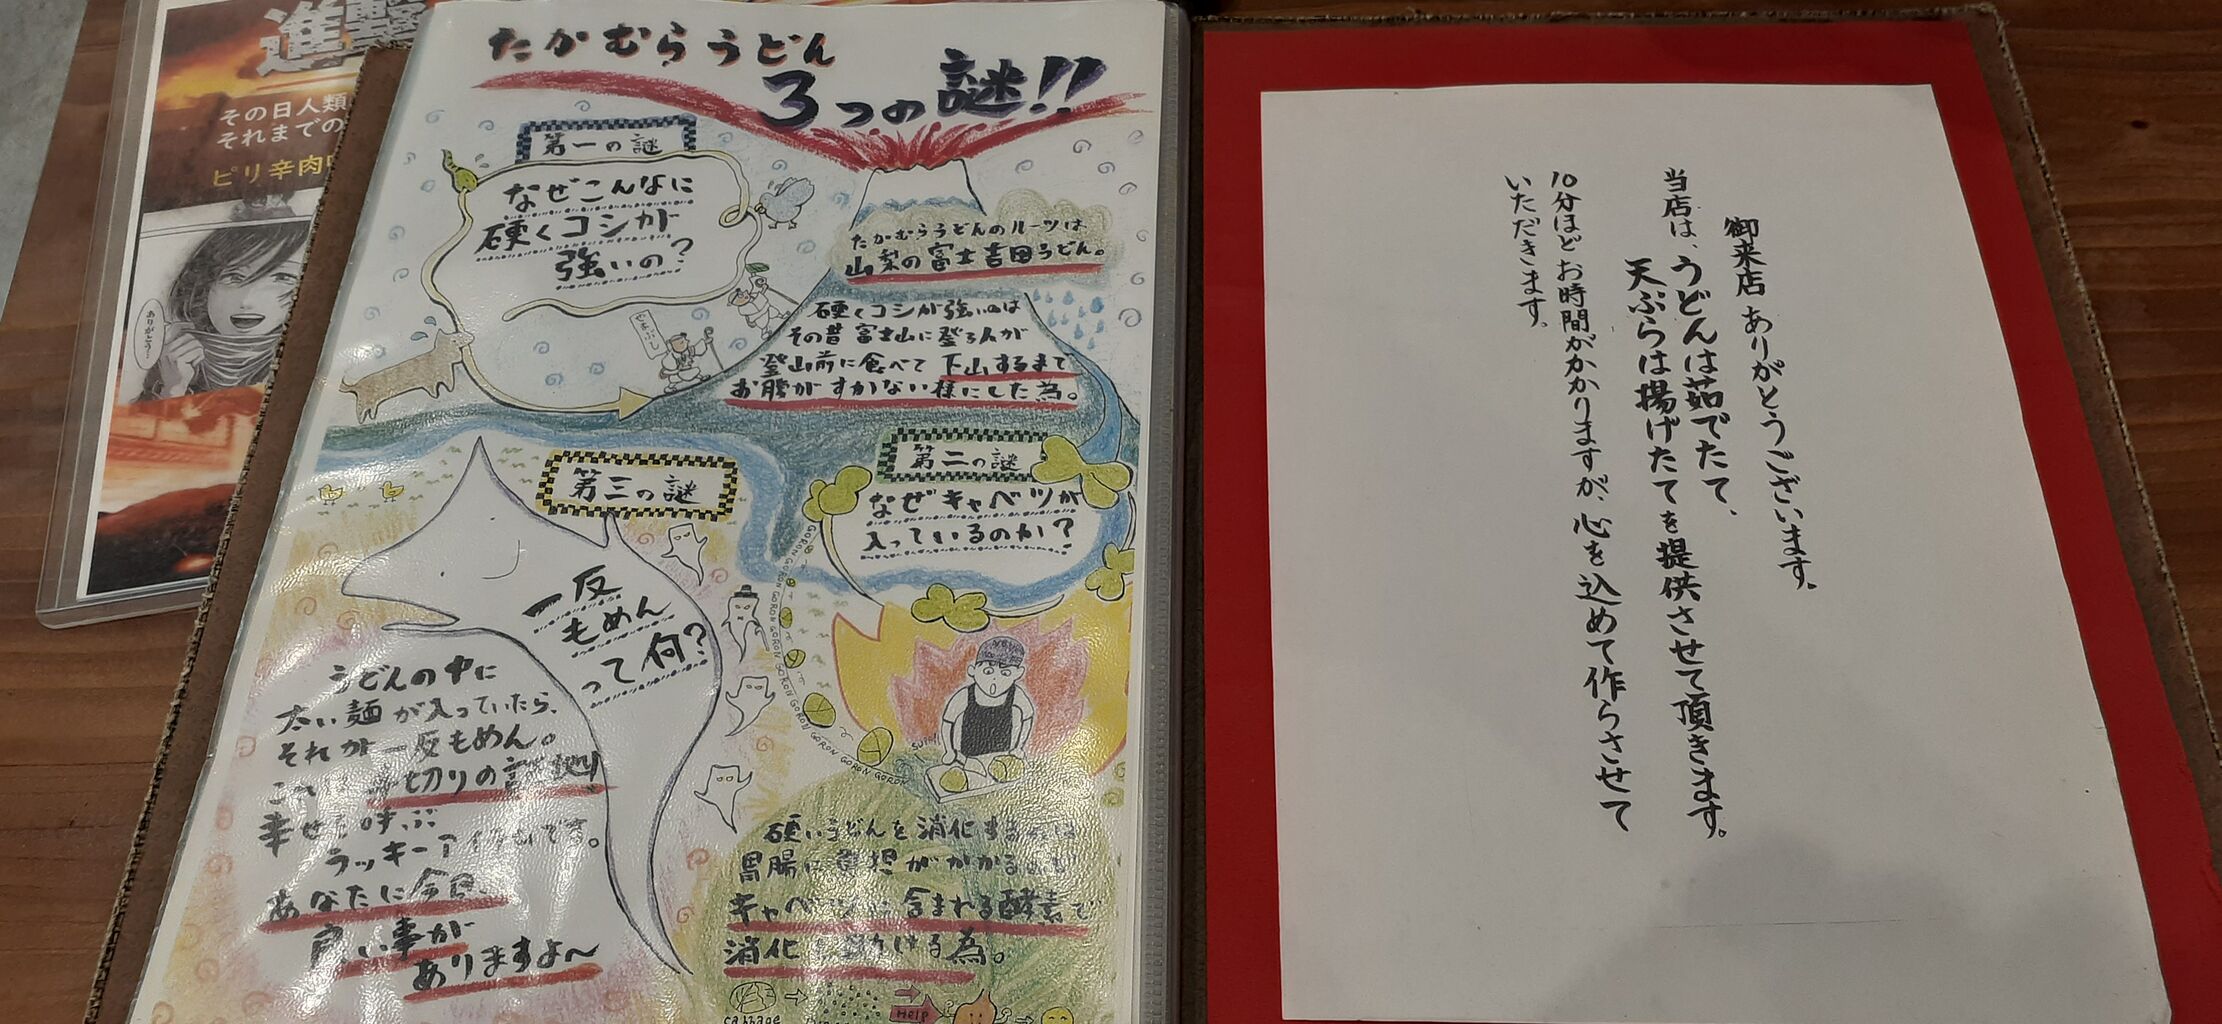 進撃
その日人類
それまでの
ピリ辛肉
ありがとう…
たかむらうどん
3つの謎!!
第一の謎
なぜこんなに
硬くコシが
強いの?
たかむらうどんのルーツは
山梨の富士吉田うどん。
硬くコシが強いのは
その昔富士山に登る人が
登山前に食べて下山するまで
お腹がすかない様にした為。
やまぶし
第二の謎
なぜキャベツが
入っているのか?
GORON GORON GORON GORON GORON GORON GORON GORON
硬いうどんを消化する
胃腸に負担がかかる
キャベツに含まれる酵素で
消化を助ける為。
cabbage
HELP
第三の謎
一反
もめん
って何?
うどんの中に
太い麺が入っていたら、
それが一反もめん。
これは
切りの
幸せを呼ぶ
ラッキーアイテムです。
あなたに今日、
良い事が
ありますよ〜
御来店ありがとうございます。
当店は、うどんは茹でたて、
天ぷらは揚げたてを提供させて頂きます。
10分ほどお時間がかかりますが、心を込めて作らさせて
いただきます。